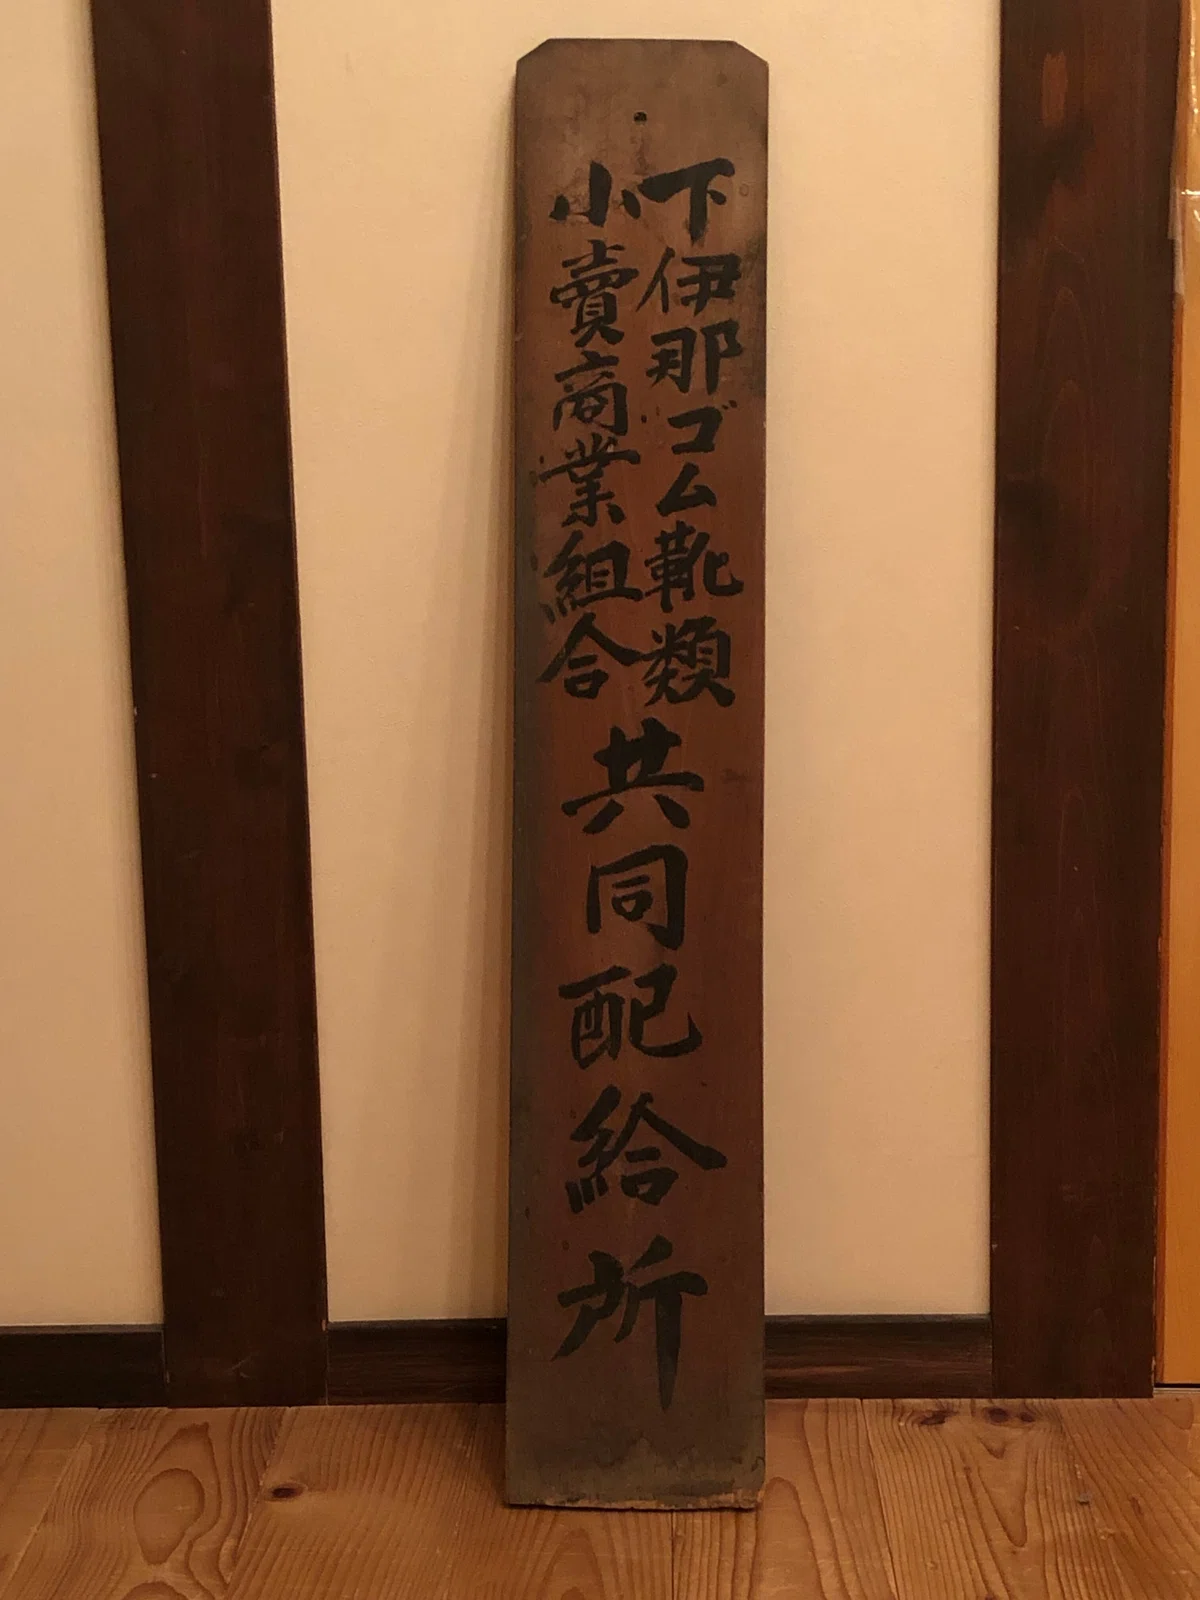 下伊那ゴム靴類
小賣商業組合
共同配給所